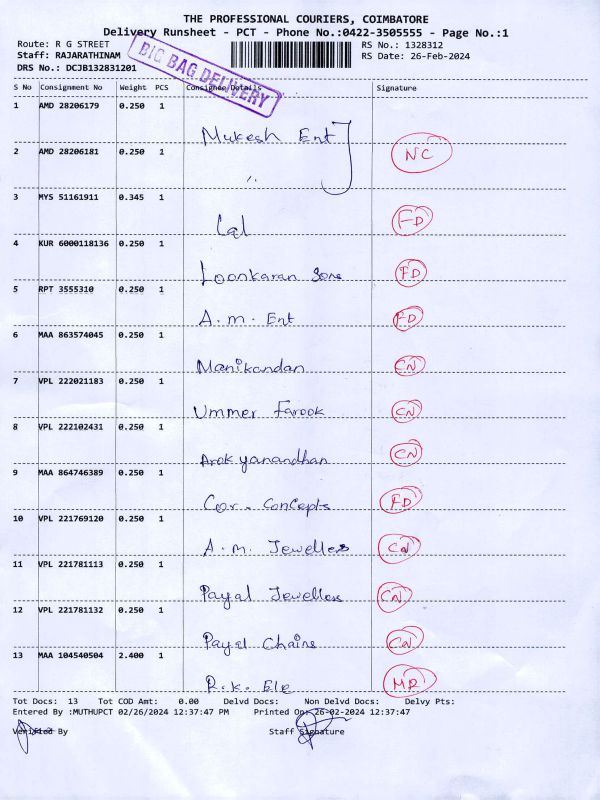 THE PROFESSIONAL COURIERS, COIMBATORE
Delivery Runsheet - PCT - Phone No.:0422-3505555 - Page No.:1
Route: R G STREET RS No.: 1328312
Staff: RAJARATHINAM RS Date: 26-Feb-2024
DRS No.: DCJB132831201
BIG BAG DELIVERY
S No Consignment No Weight PCS Consignee Details Signature
1 AMD 28206179 0.250 1 Mukesh Ent
2 AMD 28206181 0.250 1 ,, NC
3 MYS 51161911 0.345 1 Lal FD
4 KUR 6000118136 0.250 1 Loonkaran Sons FD
5 RPT 3555310 0.250 1 A.m. Ent FD
6 MAA 863574045 0.250 1 Manikandan CN
7 VPL 222021183 0.250 1 Ummer Farook CN
8 VPL 222102431 0.250 1 Arokyanandhan CN
9 MAA 864746389 0.250 1 Cor. Concepts FD
10 VPL 221769120 0.250 1 A.m. Jewellers CN
11 VPL 221781113 0.250 1 Payal Jewellers CN
12 VPL 221781132 0.250 1 Payal Chains CN
13 MAA 104540504 2.400 1 R.K. Ele MR
Tot Docs: 13 Tot COD Amt: 0.00 Delvd Docs: Non Delvd Docs: Delvy Pts:
Entered By :MUTHUPCT 02/26/2024 12:37:47 PM Printed On: 26-02-2024 12:37:47
Verified By Staff Signature